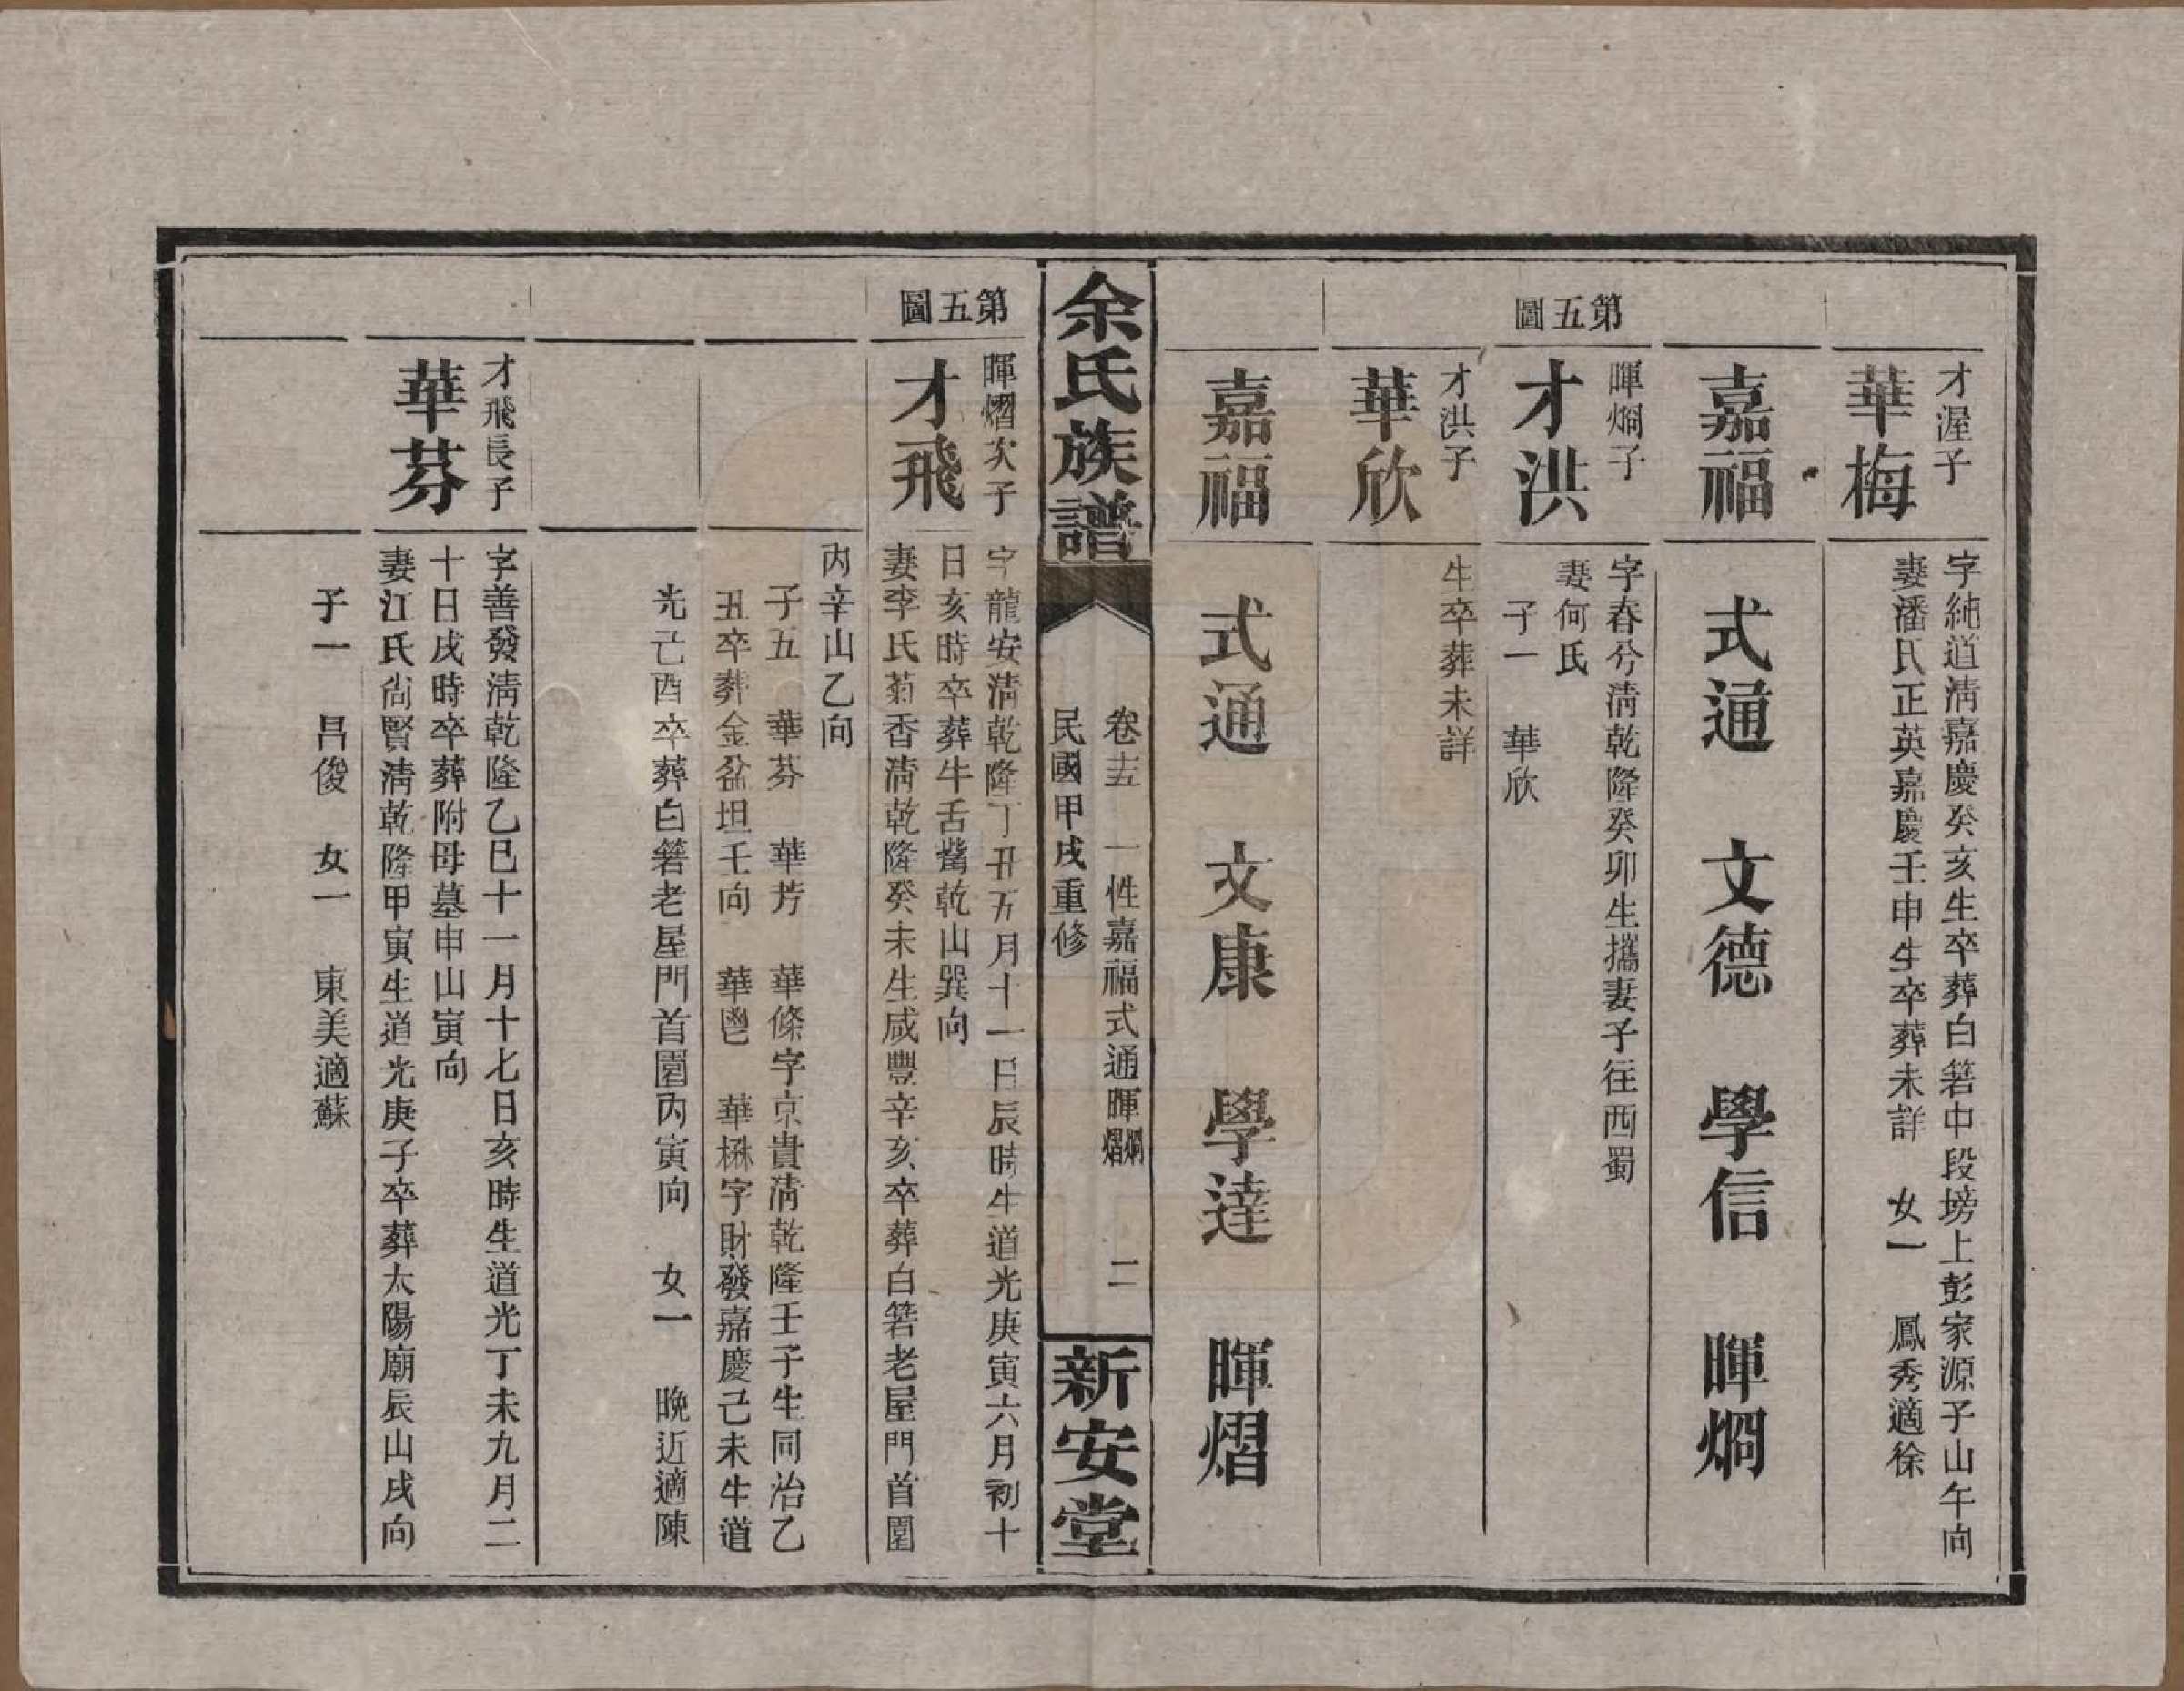 才渥子
華梅
字純道清嘉慶癸亥生卒葬白箬中段塝上彭家源子山午向
妻潘氏正英嘉慶壬申生卒葬未詳　女一　鳳秀適徐
嘉福　式通　文德　學信　暉烱
第五圖
暉烱子
才洪
字春兮清乾隆癸卯生攜妻子往西蜀
妻何氏
子一　華欣
才洪子
華欣
生卒葬未詳
嘉福　式通　文康　學達　暉熠
余氏族譜
卷十五　一性嘉福式通暉烱熠　二
民國甲戌重修
新安堂
第五圖
暉熠次子
才飛
字龍安清乾隆丁丑五月十一日辰時生道光庚寅六月初十
日亥時卒葬牛舌觜乾山巽向
妻李氏菊香清乾隆癸未生咸豐辛亥卒葬白箬老屋門首園
丙辛山乙向
子五　華芬　華芳　華條字京貴清乾隆壬子生同治乙
丑卒葬金盆坦壬向　華鬯　華楙字財發嘉慶己未生道
光己酉卒葬白箬老屋門首園丙寅向　女一　晩近適陳
才飛長子
華芬
字善發清乾隆乙巳十一月十七日亥時生道光丁未九月二
十日戌時卒葬附母墓申山寅向
妻江氏尙賢清乾隆甲寅生道光庚子卒葬太陽廟辰山戌向
子一　昌俊　女一　東美適蘇